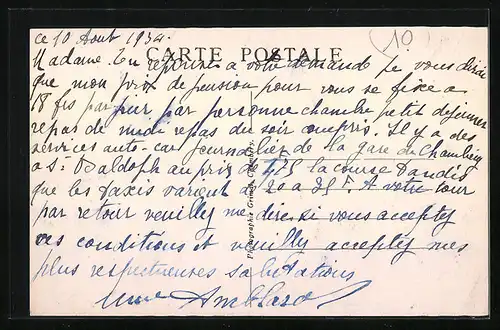 ce 10 Aout 1934.
10
CARTE POSTALE
Madame. En réponse a votre demande je vous
que mon prix de pension pour vous se fixe a
18 frs par jour par personne chambre petit dejeuner
repas de midi repas du soir compris. Il y a des
services auto-car journalier de la gare de Chambery
a St Baldoph au prix de la course tandis
que les taxis varient de 20 a 25 F. A votre tour
par retour veuillez me dire si vous acceptez
ces conditions et veuillez acceptez mes
plus respectueuses salutations
Mme